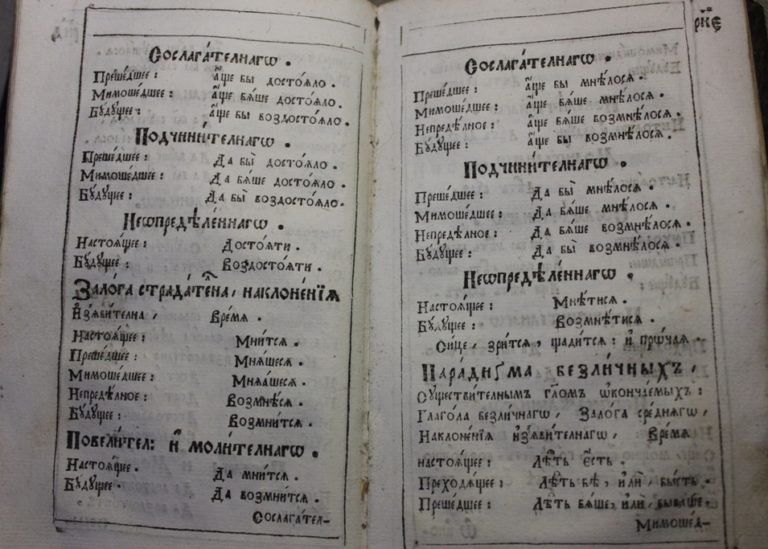 Сослага́телнагѡ .
Преше́дшее : а҆́ще бы̀ досто́ѧло .
Мимоше́дшее : а҆́ще бѧ́ше досто́ѧло .
Бꙋ́дꙋщее : а҆́ще бы̀ воздосто́ѧло .
Подчини́телнагѡ .
Преше́дшее : Да бы̀ досто́ѧло .
Мимоше́дшее : Да бѧ́ше досто́ѧло .
Бꙋ́дꙋщее : Да бы̀ воздосто́ѧло .
Неѡпредѣле́ннагѡ .
Настоѧ́щее : Достоѧ́ти .
Бꙋ́дꙋщее : Воздостоѧ́ти .
Зало́га страда́телна , наклоне́нїѧ
И҆з̾ѧви́телна , Вре́мѧ .
Настоѧ́щее : Мни́тсѧ .
Преше́дшее : Мнѧ́шесѧ .
Мимоше́дшее : Мнѧ́ашесѧ .
Непредѣ́лное : Возмнѣ́сѧ .
Бꙋ́дꙋщее : Возмни́тсѧ .
Повели́тел : и҆ моли́телнагѡ .
Настоѧ́щее . Да мни́тсѧ .
Бꙋ́дꙋщее . Да возмни́тсѧ .
Сослага́тел-
рк҃є
Сослага́телнагѡ .
Преше́дшее : а҆́ще бы мнѣ́лосѧ .
Мимоше́дшее : а҆́ще бѧ́ше мнѣ́лосѧ .
Непредѣ́лное : а҆́ще бѧ́ше возмнѣ́лосѧ .
Бꙋ́дꙋщее : а҆́ще бы возмнѣ́лосѧ .
Подчини́телнагѡ .
Преше́дшее : Да бы̀ мнѣ́лосѧ .
Мимоше́дшее : Да бѧ́ше мнѣ́лосѧ .
Непредѣ́лное : Да бѧ́ше возмнѣ́лосѧ .
Бꙋ́дꙋщее : Да бы̀ возмнѣ́лосѧ .
Неѡпредѣле́ннагѡ .
Настоѧ́щее : Мнѣ́тисѧ .
Бꙋ́дꙋщее : Возмнѣ́тисѧ .
Си́це , зри́тсѧ , щади́тсѧ : и҆ прѡ́чаѧ .
Паради́гма безли́чныхъ ,
Сꙋществи́телнымъ гл҃омъ ѡ҆конча́емыхъ :
Глаго́ла безли́чнагѡ , Зало́га сре́днѧгѡ ,
Наклоне́нїѧ и҆з̾ѧви́телнагѡ , Вре́мѧ
настоѧ́щее : Лѣ́ть є҆́сть .
Преходѧ́щее : Лѣ́ть бѣ̀ , и҆лѝ , бы́сть .
Преше́дшее : Лѣ́ть бѧ́ше , и҆лѝ , быва́ше .
Мимоше́д-